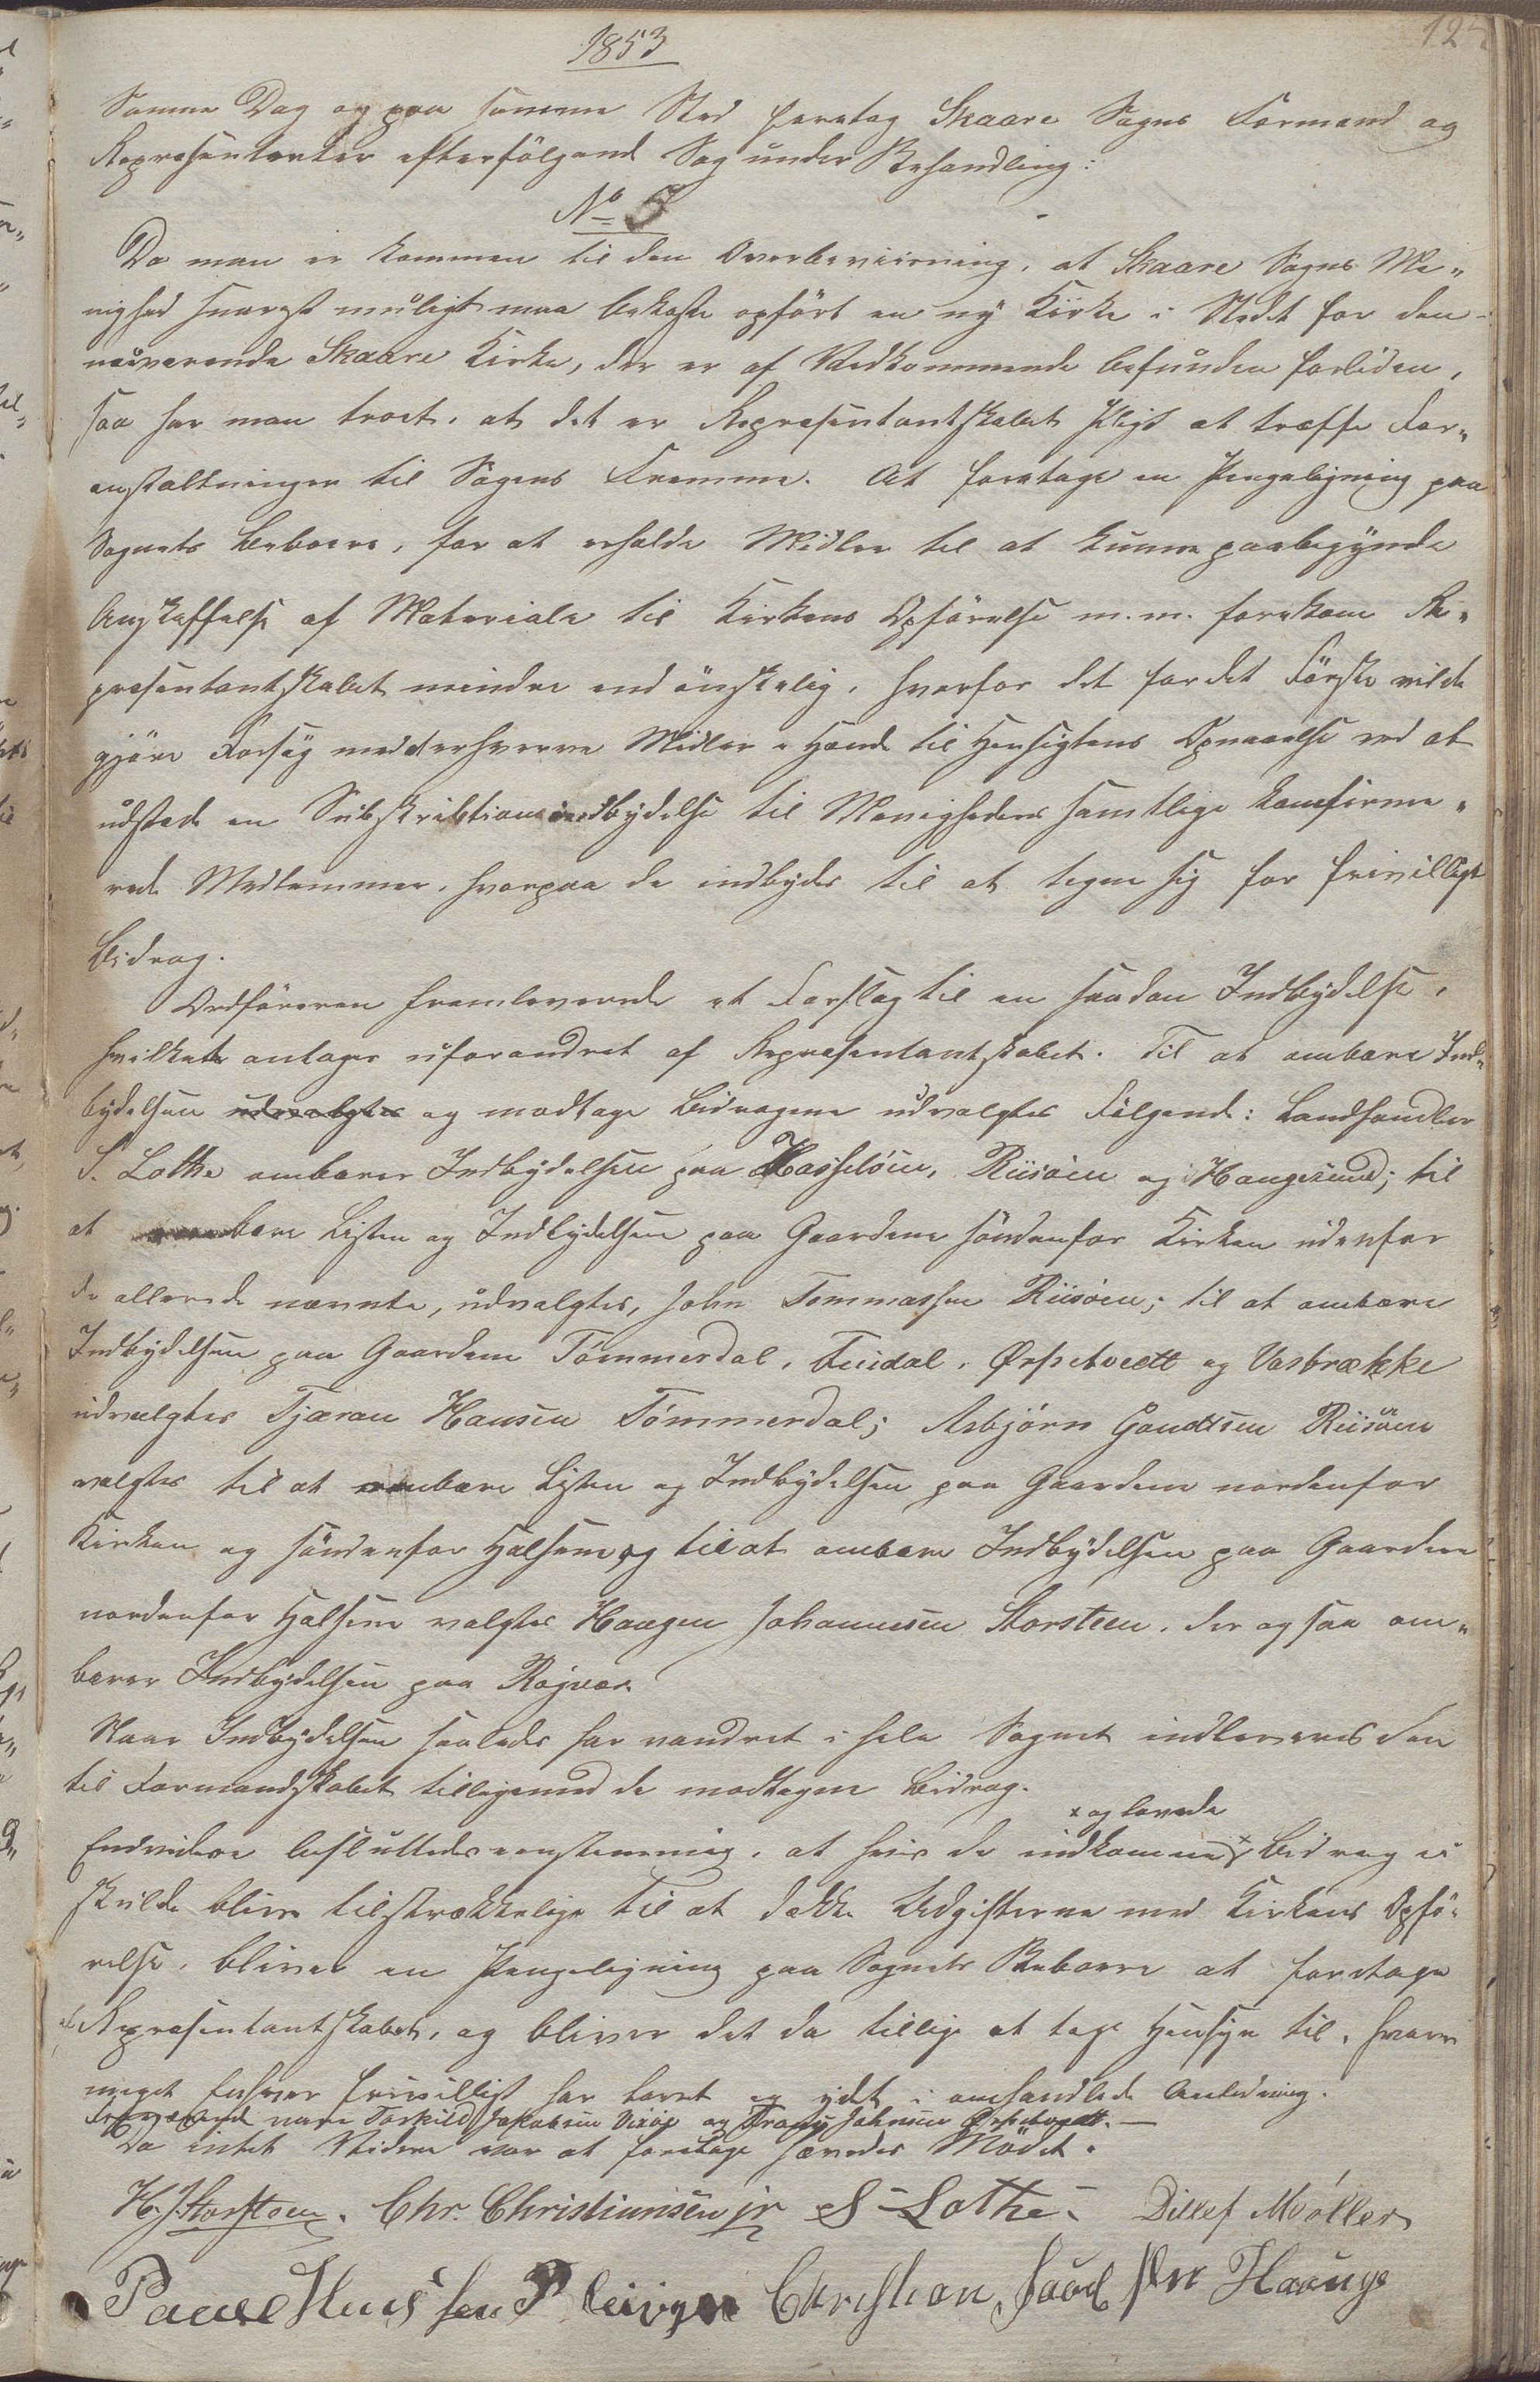 1853
Samme Dag og paa samme Sted foretog Skaare Sogns Formænd og
Repræsentanter efterfölgende Sag under Behandling:
No 5
Da man er kommen til den Overbeviisning, at Skaare Sogns Me„
nighed snarest muligt maa bekoste opfört en ny Kirke i Stedet for den
nuværende Skaare Kirke, der er af Vedkommende befunden forliden,
saa har man troet, at det er Repræsentantskabets Pligt at træffe For„
anstaltninger til Sagens Fremme. At foretage en Pengeligning paa
Sognets Beboere, for at erholde Midler til at kunne paabegynde
Anskaffelse af Materiale til Kirkens Opförelse m. m. forekom Re„
præsentantskabet mindre end önskelig, hvorfor det for det Förste vilde
gjöre Forsög med at erhverve Midler i Hænde til Hensigtens Opnaaelse ved at
udstede en Subskribtionsindbydelse til Menighedens samtlige konfirme„
rede Medlemmer, hvorpaa de indbydes til at tegne sig for frivilligt
Bidrag.
Ordföreren fremleverede et Forslag til en saadan Indbydelse,
hvilket antages uforandret af Repræsentantskabet. Til at ombære Ind„
bydelsen udvalgtes og modtage Bidragene udvalgtes Fölgende: Landhandler
S. Lothe ombærer Indbydelsen paa Hasselöen, Riisöen og Haugesund; til
at ombære Listen og Indbydelsen paa Gaardene söndenfor Kirken udenfor
de allerede nævnte, udvalgtes, John Tommassen Riisöen; til at ombære
Indbydelsen paa Gaardene Tömmerdal, Fuidal, Ørpetvedt og Vasbrække
udvalgtes Tjæran Hansen Tömmerdal; Asbjörn Gaudtsen Riisöen
valgtes til at ombære Listen og Indbydelsen paa Gaardene nordenfor
Kirken og söndenfor Halsene, og til at ombære Indbydelsen paa Gaardene
nordenfor Halsene valgtes Haagen Johannesen Storsteen, der ogsaa om„
bærer Indbydelsen paa Rögvær.
Naar Indbydelsen saaledes har vandret i hele Sognet indleveres den
til Formandskabet tilligemed de modtagne Bidrag.
x og lovede
Endvidere besluttedes eenstemmig, at hvis de indkomne x Bidrag ei
skulde blive tilstrækkelige til at dække Udgifterne med Kirkens Opfö„
relse, bliver en Pengeligning paa Sognets Beboere at foretage
af Repræsentantskabet, og bliver det da tillige at tage Hensyn til, hvor
meget Enhver frivilligt har lovet og ydet i omhandlede Anledning.
Fraværende vare Torkild Jakobsen Vixöe og Frantz Johnsen Ørpetvedt.—
Da intet Videre var at foretage hævedes Mödet.
H. J. Storsteen. Chr. Christiansen jr S. Lothe. Dillef Möller
Paul Knudsen Christian Haauge